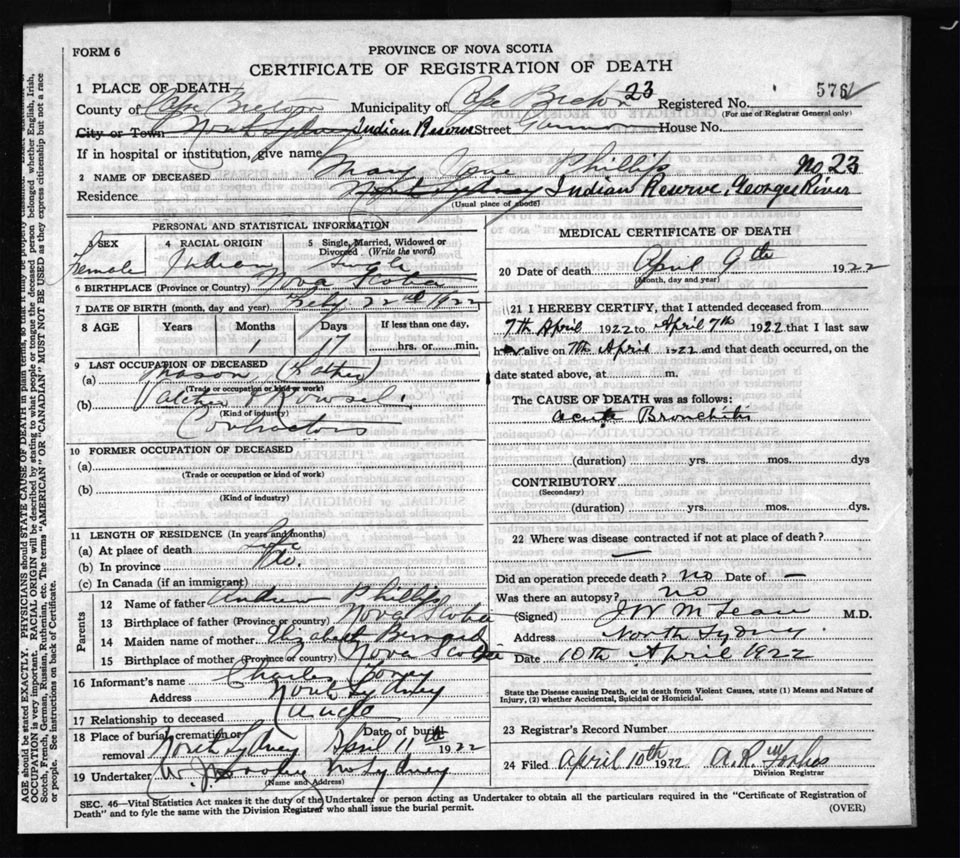 FORM 6
PROVINCE OF NOVA SCOTIA
CERTIFICATE OF REGISTRATION OF DEATH
1 PLACE OF DEATH—
County of Cape Breton Municipality of Cape Breton 23 Registered No. 576
(For use of Registrar General only)
City or Town North Sydney Indian Reserve Street House No.
If in hospital or institution, give name
2 NAME OF DECEASED Mary Jane Phillips No 23
Residence North Sydney Indian Reserve, Georges River
(Usual place of abode)
PERSONAL AND STATISTICAL INFORMATION
3 SEX Female
4 RACIAL ORIGIN Indian
5 Single, Married, Widowed or Divorced (Write the word) Single
6 BIRTHPLACE (Province or Country) Nova Scotia
7 DATE OF BIRTH (month, day and year) Feby. 22nd 1922
8 AGE Years Months Days If less than one day,
1 17 hrs. or min.
9 LAST OCCUPATION OF DECEASED
(a) Mason (Father)
(Trade or occupation or kind of work)
(b)
(Kind of industry)
Contractors
10 FORMER OCCUPATION OF DECEASED
(a)
(Trade or occupation or kind of work)
(b)
(Kind of industry)
11 LENGTH OF RESIDENCE (In years and months)
(a) At place of death Life
(b) In province Do.
(c) In Canada (if an immigrant)
Parents
12 Name of father Andrew Phillips
13 Birthplace of father (Province or country) Nova Scotia
14 Maiden name of mother Elizabeth Bernard
15 Birthplace of mother (Province or country) Nova Scotia
16 Informant's name Charles
Address North Sydney
17 Relationship to deceased
18 Place of burial, cremation or removal North Sydney Date of burial April 11th 1922
19 Undertaker W. J. No Sydney
(Name and Address)
MEDICAL CERTIFICATE OF DEATH
20 Date of death April 9th 1922
(Month, day and year)
21 I HEREBY CERTIFY, that I attended deceased from
7th April 1922 to April 7th 1922 that I last saw
her alive on 7th April 1922 and that death occurred, on the
date stated above, at m.
The CAUSE OF DEATH was as follows:
Acute Bronchitis
(duration) yrs. mos. dys
CONTRIBUTORY
(Secondary)
(duration) yrs. mos. dys.
22 Where was disease contracted if not at place of death?
—
Did an operation precede death? No Date of —
Was there an autopsy? No
(Signed) J W McLean M.D.
Address North Sydney
Date 10th April 1922
State the Disease causing Death, or in death from Violent Causes, state (1) Means and Nature of
Injury, (2) whether Accidental, Suicidal or Homicidal.
23 Registrar's Record Number
24 Filed April 10th 1922 A.R. Forbes
Division Registrar
SEC. 46—Vital Statistics Act makes it the duty of the Undertaker or person acting as Undertaker to obtain all the particulars required in the "Certificate of Registration of
Death" and to fyle the same with the Division Registrar who shall issue the burial permit.
(OVER)
AGE should be stated EXACTLY. PHYSICIANS should STATE CAUSE OF DEATH in plain terms, so that it may be properly classified.
OCCUPATION is very important. RACIAL ORIGIN will be described by stating to what people or tongue the deceased person belonged, whether English, Irish,
Scotch, French, German, Russian, Ruthenian, etc. The terms "AMERICAN" OR "CANADIAN" MUST NOT BE USED as they express citizenship but not a race
or people. See instructions on back of Certificate.